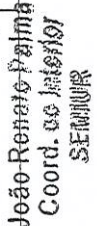 João Renato Palma
Coord. do Interior
SEMIUR